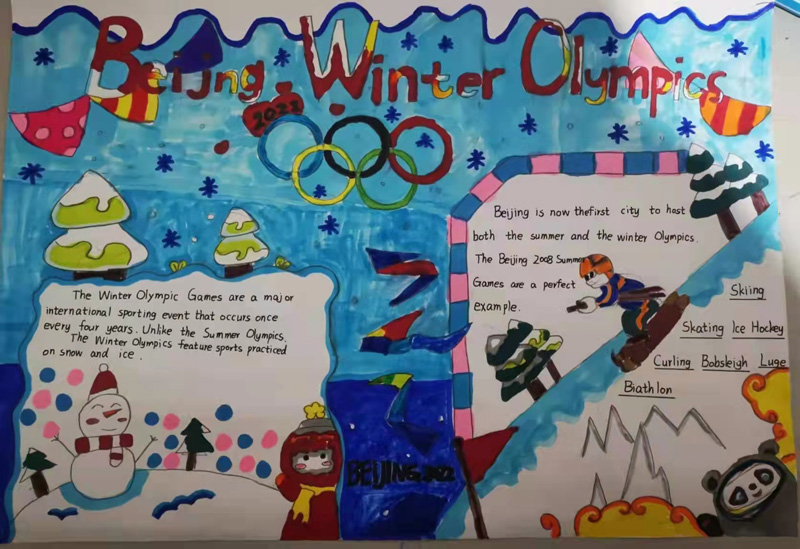 Beijing. Winter Olympics
2022
The Winter Olympic Games are a major
international sporting event that occurs once
every four years. Unlike the Summer Olympics.
The Winter Olympics feature sports practiced
on snow and ice.
Beijing is now thefirst city to host
both the summer and the winter Olympics.
The Beijing 2008 Summer
Games are a perfect
example.
Skiing
Skating Ice Hockey
Curling Bobsleigh Luge
Biathlon
BEIJING 2022